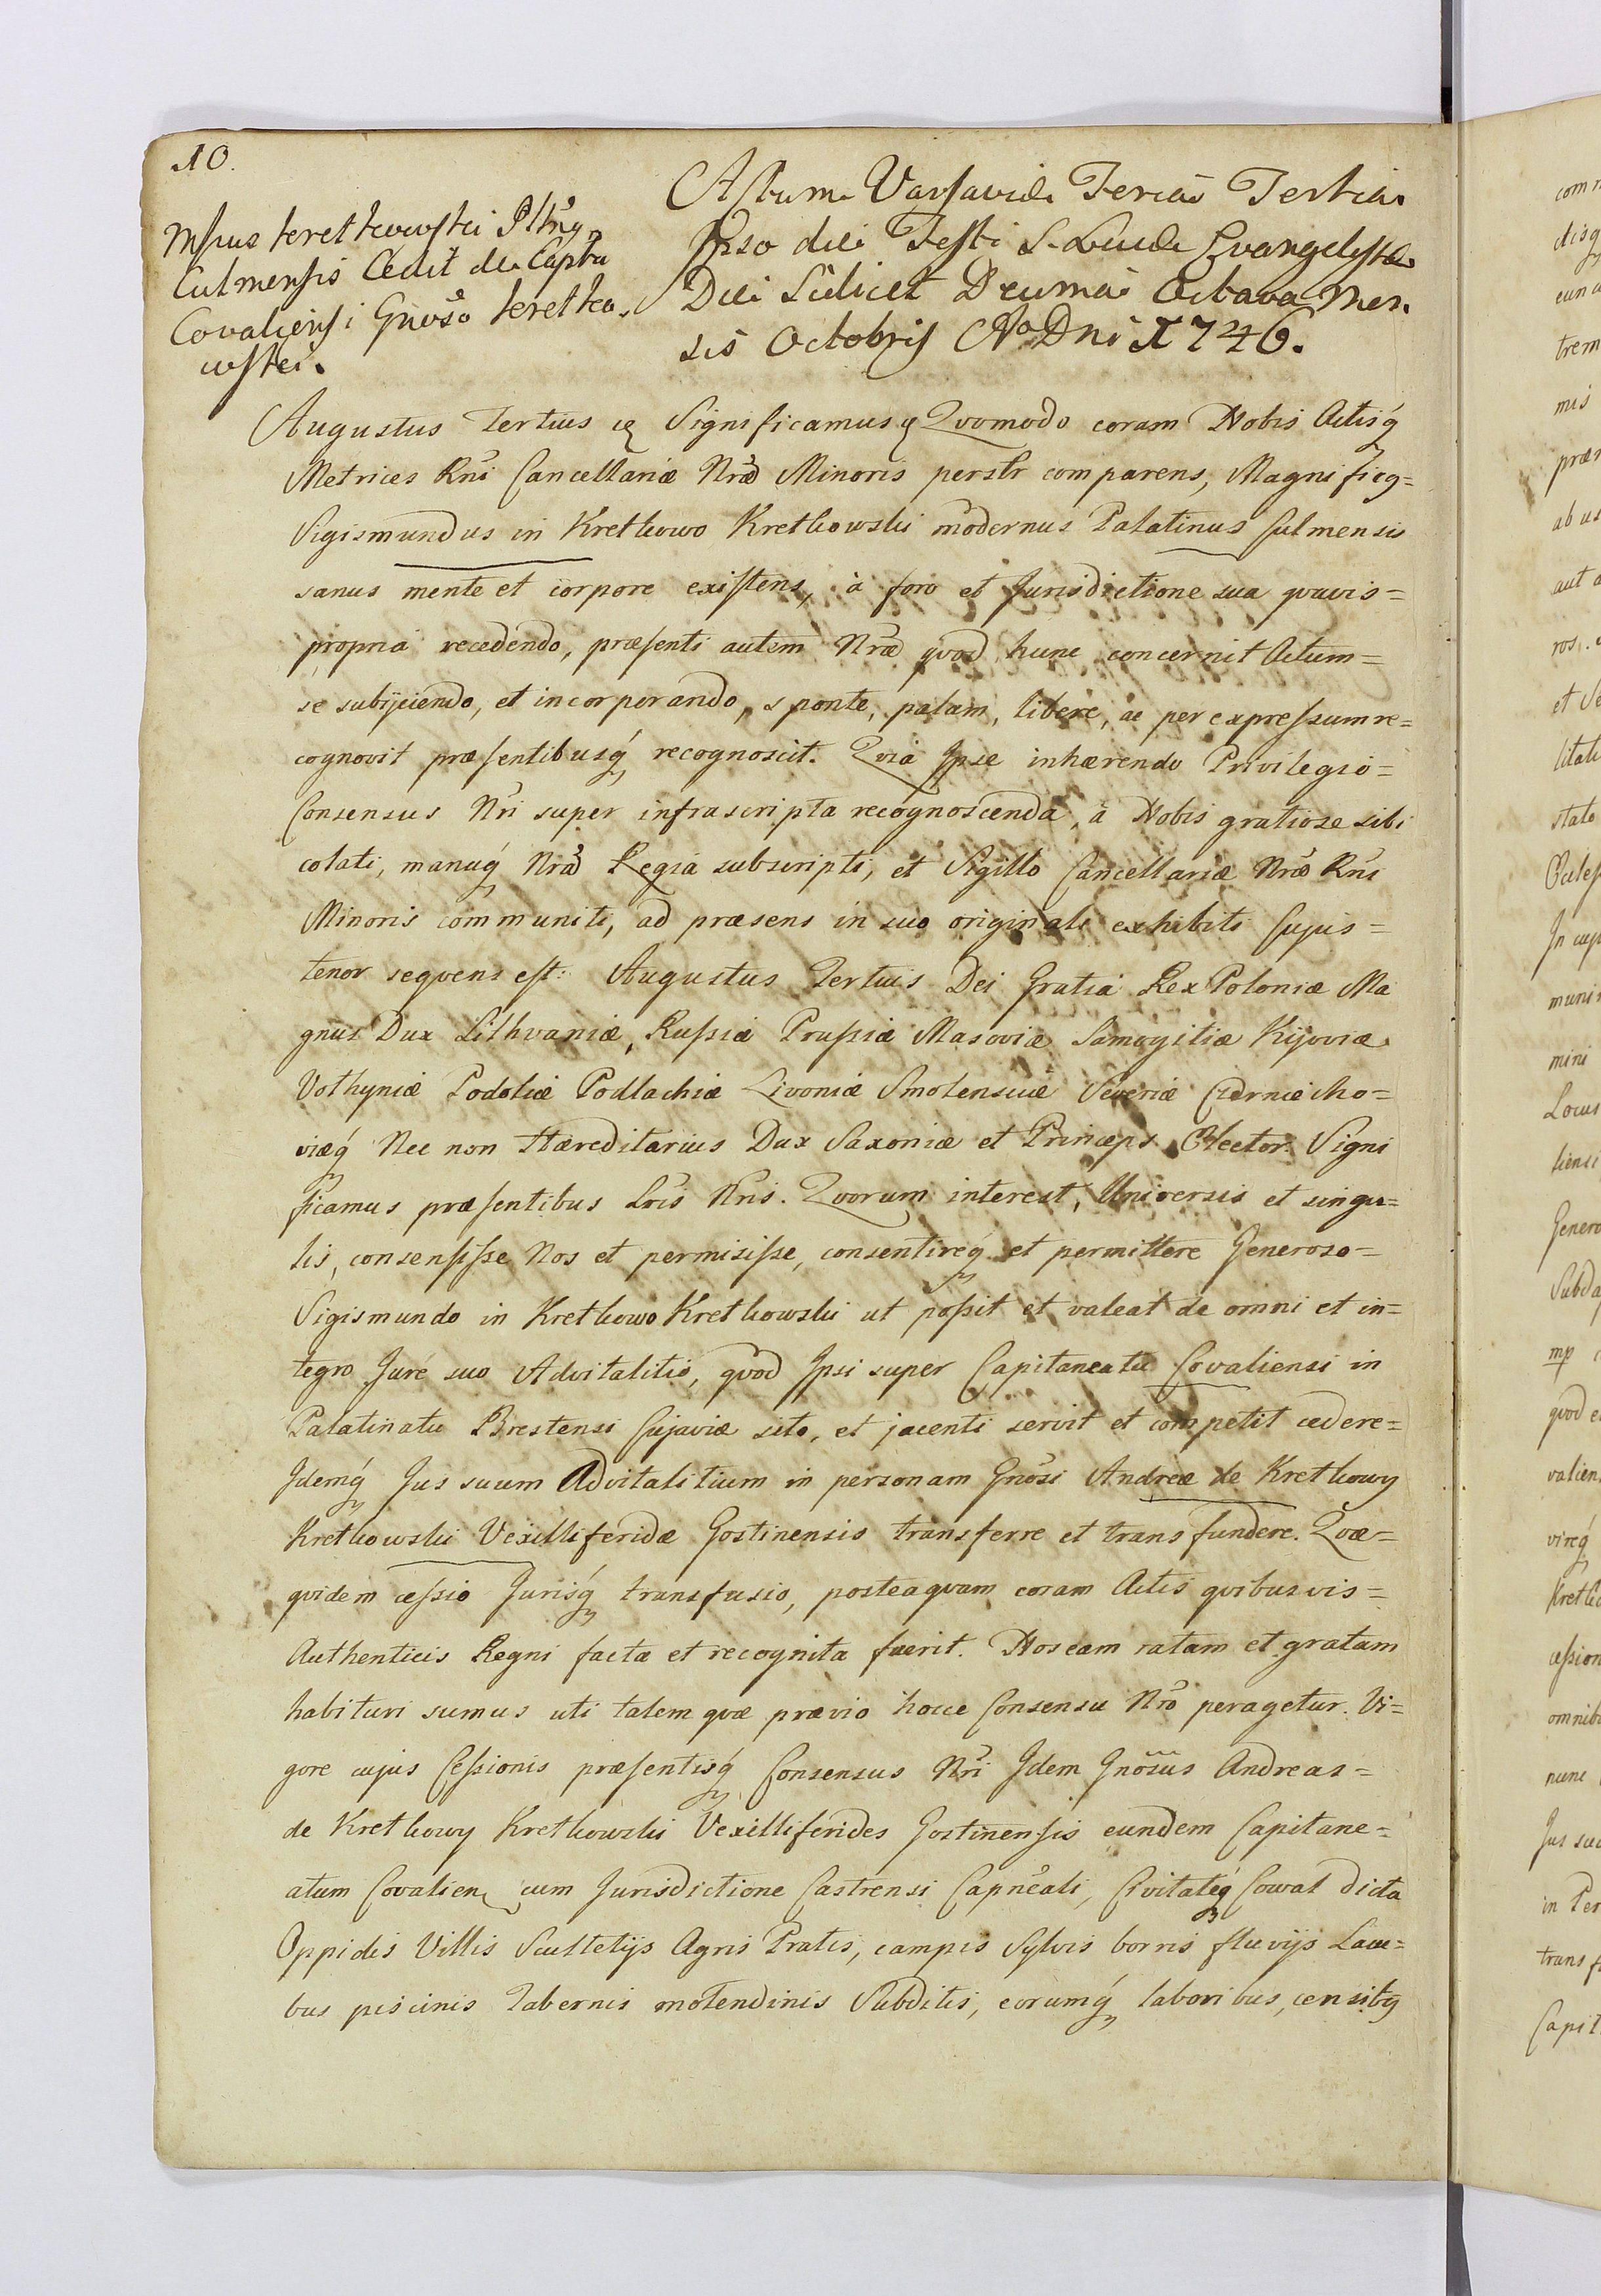 10.
Mſſcus Kretkowſki Pltnꝯ
Culmenſis Cedit de Captu
Covalienſi Gnoso Kretko
wſkei.
Actum Varſaviæ Feria Tertia
Ipso die Feſti S. Lucæ Evangelyſtæ
Die Scilicet Decima Octava Men
sis Octobris Ao Dni 1746.
Augustus Tertius ꝛc Significamus ꝛc Qvomodo coram Nobis Actisq́
Metrices Rni Cancellariæ Nræ Minoris perslr comparens, Magnificꝯ=
Sigismundus in Kretkowo Kretkowski modernus Palatinus Culmensis
sanus mente et corpore exiſtens, à foro et Jurisdictione sua qvavis=
propria recedendo, præſenti autem Nræ qvod hunc concernit Actum=
se subijciendo, et incorporando, sponte, palam, libere, ac per expreſsum re=
cognovit præſentibusq́ recognoscit. Qvia Ipse inhærendo Privilegio=
Consensus Nri super infrascripta recognoscenda, à Nobis gratiose sibi
colati, manuq́ Nra Regia subscripti, et Sigillo Cancellariæ Nræ Rni
Minoris communiti, ad præsens in suo originali exhibiti Cujus=
tenor seqvens eſt: Augustus Tertius Dei Gratia Rex Poloniæ Ma
gnus Dux Lithvaniæ, Ruſsiæ Pruſsiæ Masoviæ Samogitiæ Kijoviæ
Volhyniæ Podoliæ Podlachiæ Livoniæ Smolensciæ Severiæ Czerniecho=
viæq́ Nec non Hæreditarius Dux Saxoniæ et Princeps Elector. Signi
ficamus præſentibus Lris Nris. Qvorum interest, Universis et singu=
lis, consenſiſse Nos et permisiſse, consentireq́ et permittere Generoso=
Sigismundo in Kretkowo Kretkowski ut poſsit et valeat de omni et in=
tegro Jure suo Advitalitio, qvod Ipsi super Capitaneatu Covaliensi in
Palatinatu Brestensi Cujaviæ sito, et jacenti servit et competit cedere=
Idemq́ Jus suum Advitalitium in personam Gnosi Andreæ de Kretkowy
Kretkowski Vexilliferidæ Gostinensis transferre et transfundere. Qvæ=
qvidem ceſsio Jurisq́ transfusio, posteaqvam coram Actis qvibusvis=
Authenticis Regni facta et recognita fuerit. Nos eam ratam et gratam
habituri sumus uti talem qvæ prævio hocce Consensu Nro peragetur. Vi=
gore cujus Ceſsionis præſentisq́ Consensus Nri Idem Gnosus Andreas=
de Kretkowy Kretkowski Vexilliferides Gostinenſis eundem Capitane=
atum Covalien cum Jurisdictione Castrensi Capneali, Civitateq́ Cowal dicta
Oppidis Villis Scultetijs Agris Pratis, campis Sylvis borris fluvijs Lacu=
bus piscinis Tabernis molendinis Subditis, eorumq́ laboribus, censibꝯ